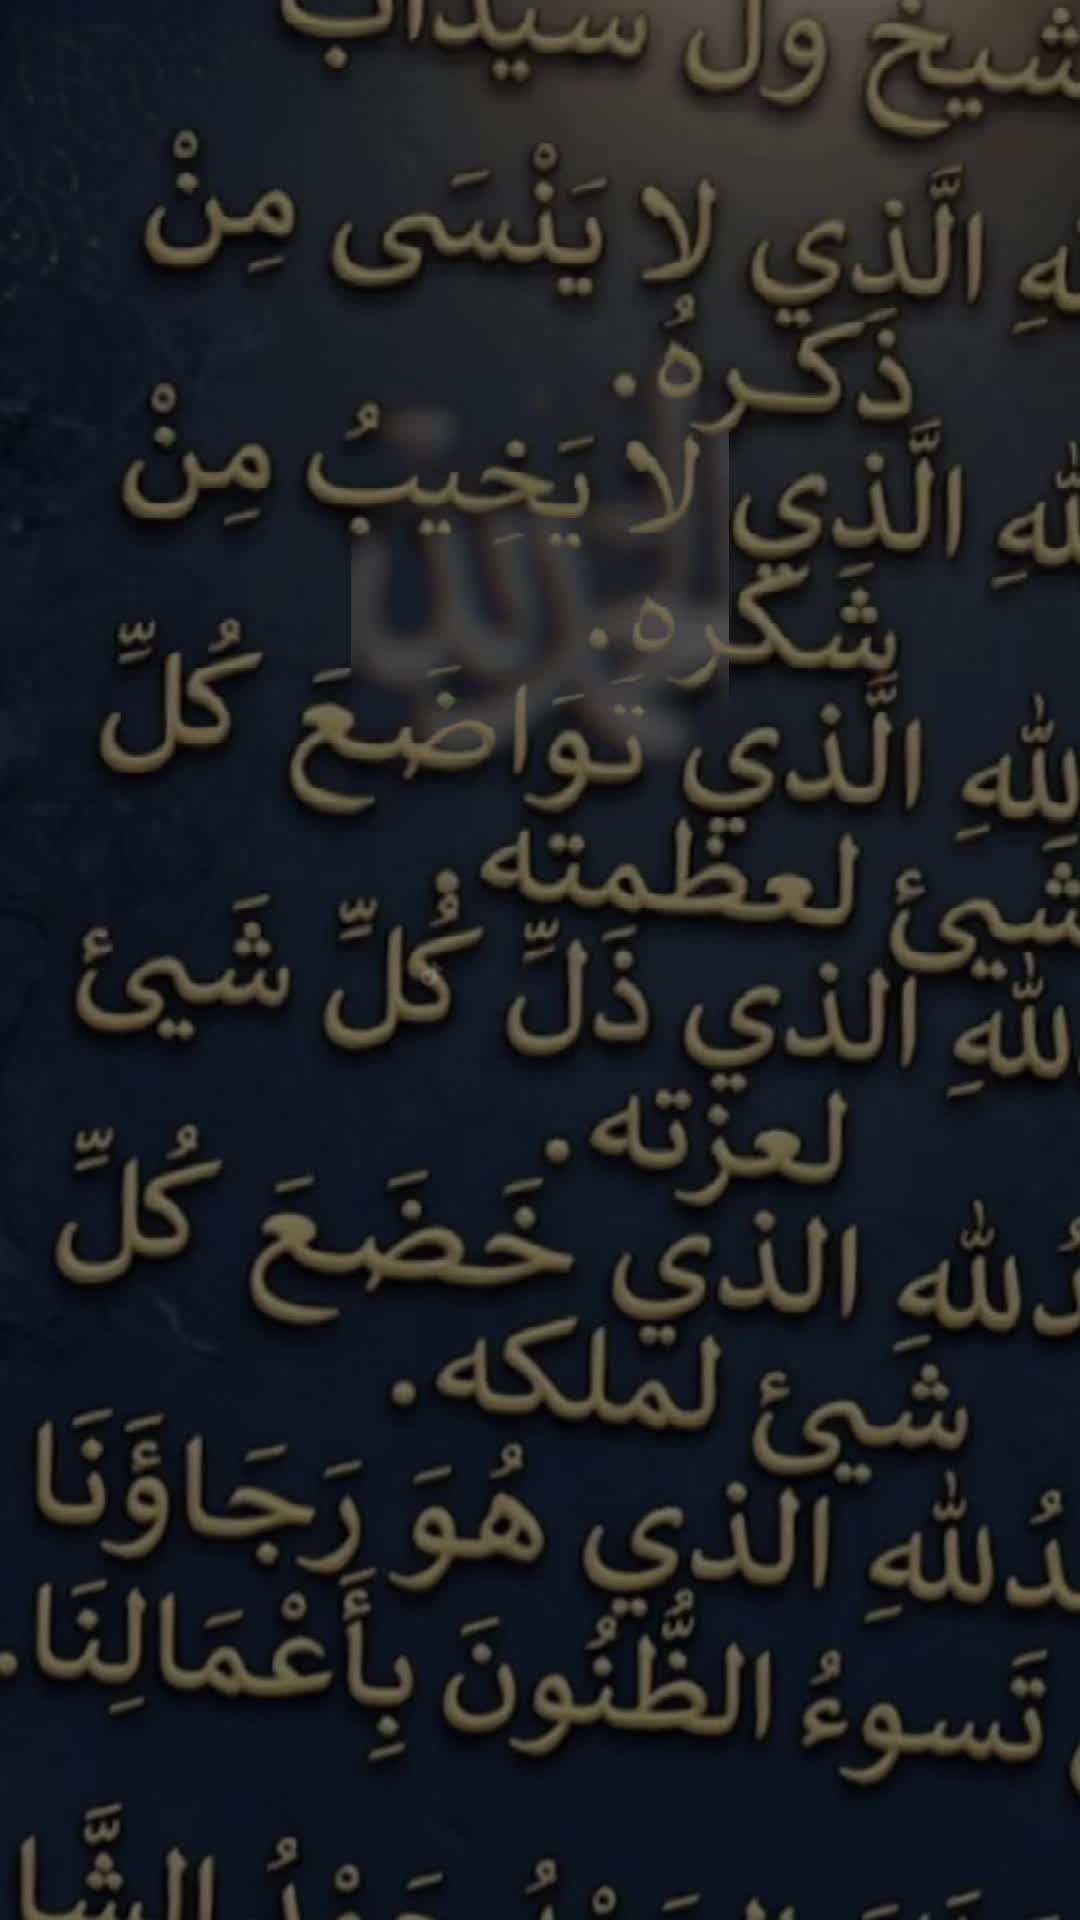 شيخ ول سيداب
لهِ الَّذِي لا يَنْسَى مِنْ
ذَكَرهُ.
للهِ الَّذِي لا يَخِيبُ مِنْ
شَكَره.
للهِ الَّذي تَوَاضَعَ كُلِّ
شَيئ لعظمته.
للهِ الذي ذَلِّ كُلِّ شَيئ
لعزته.
دُللهِ الذي خَضَعَ كُلِّ
شَيئ لملكه.
دُللهِ الذي هُوَ رَجَاؤَنَا
تَسوءُ الظُّنُونَ بِأَعْمَالِنَا.